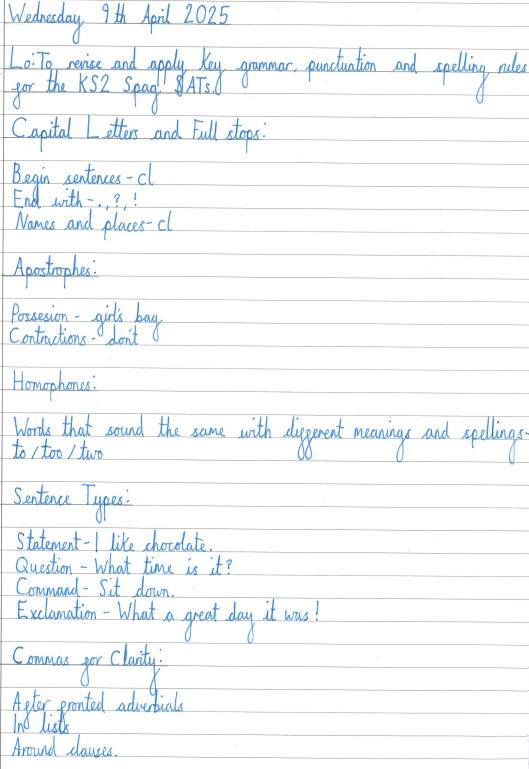 Wednesday, 9th April 2025
Lo:To revise and apply key grammar, punctuation and spelling rules
for the KS2 Spag SATs.
Capital Letters and Full stops:
Begin sentences - cl
End with - . , ? , !
Names and places - cl
Apostrophes:
Possesion - girl's bag
Contractions - don't
Homophones:
Words that sound the same with different meanings and spellings-
to / too / two
Sentence Types:
Statement - I like chocolate.
Question - What time is it?
Command - Sit down.
Exclamation - What a great day it was!
Commas for Clarity:
After fronted adverbials
In lists
Around clauses.